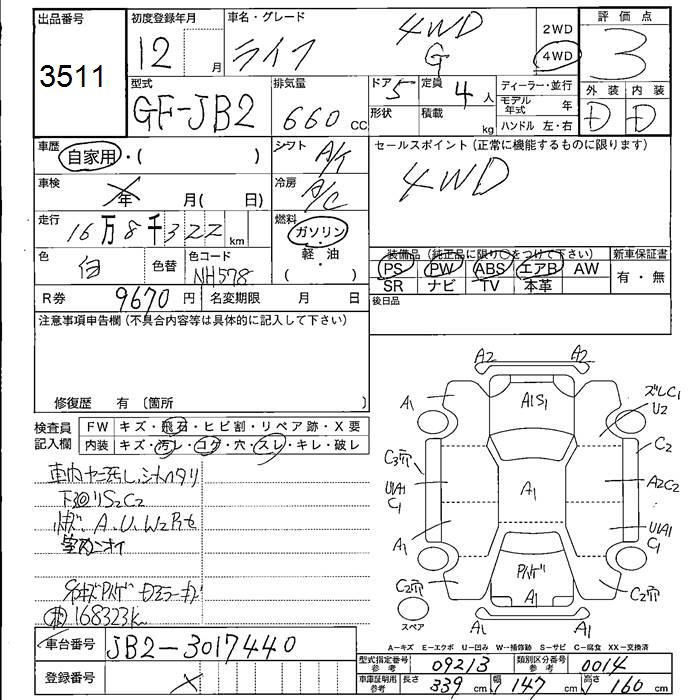 出品番号 初度登録年月 車名・グレード 2WD 評価点
3511 12月 ライフ 4WD G 4WD 3
型式 排気量 ドア 5 定員 4人 ディーラー・並行 外装 内装
GF-JB2 660cc 形状 積載 kg モデル年式 年 D D
ハンドル 左・右
車歴 自家用・( ) シフト A/T セールスポイント(正常に機能するものに限ります)
車検 年 月( 日) 冷房 A/C 4WD
走行 16万8千322km 燃料 ガソリン・軽油 ( )
装備品(純正品に限り○をつけて下さい) 新車保証書
色 白 色替 色コード NH578 PS PW ABS エアB AW 有・無
SR ナビ TV 本革
R券 9670円 名変期限 月 日 後日品
注意事項申告欄(不具合内容等は具体的に記入して下さい)
修復歴 有 〔箇所 〕
検査員記入欄 FW キズ・飛石・ヒビ割・リペア跡・X要
内装 キズ・汚レ・コゲ・穴・スレ・キレ・破レ
車内ヤニ汚レ、シートヘタリ
下廻りS2C2
A、U、W2
室内ニオイ
168323k
A2 A2
A1 A1S1 U2
C2
C3穴 A2C2
U1A1 A1 U1A1
C1 C1
A1
C2穴 C2穴
スペア A1 A1
A-キズ E-エクボ U-凹み W-補修跡 S-サビ C-腐食 XX-交換済
車台番号 JB2-3017440
型式指定番号 参考 09213 類別区分番号 参考 0014
登録番号 X
車庫証明用 参考 長さ 339cm 幅 147cm 高さ 160cm